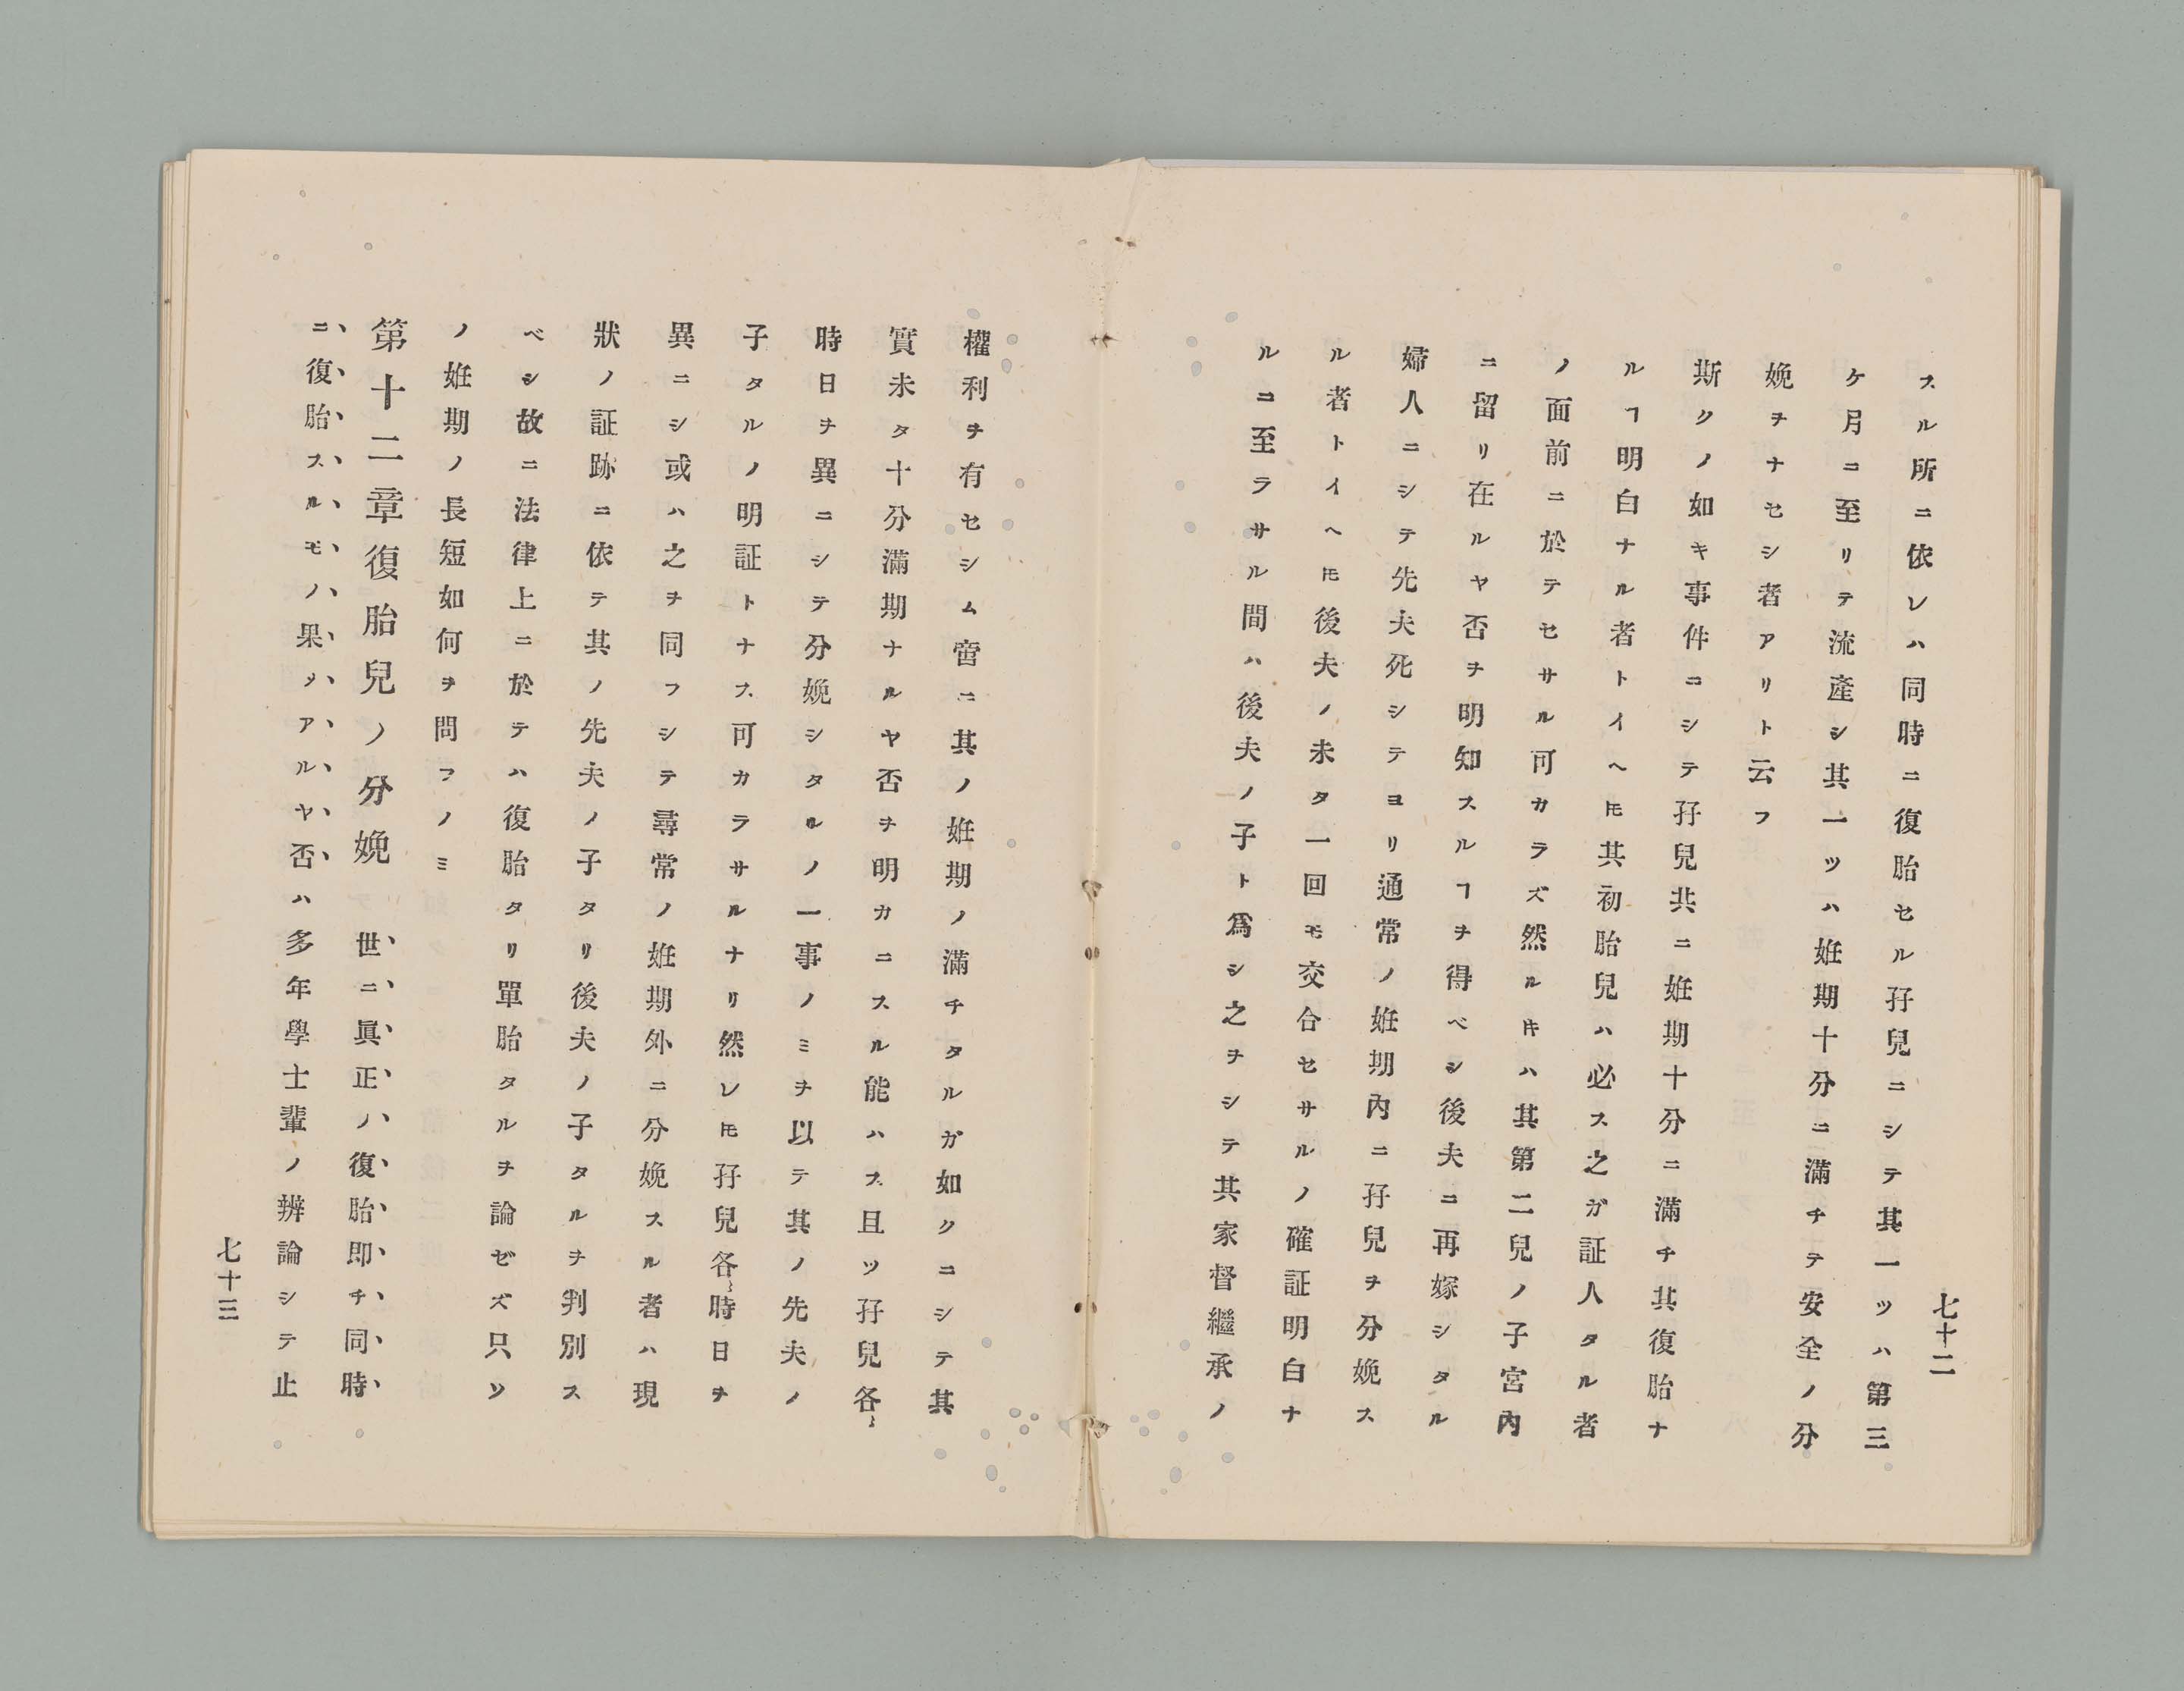 七十二
スル所ニ依レハ同時ニ復胎セル孖兒ニシテ其一ツハ第三
ケ月ニ至リテ流產シ其一ツハ姙期十分ニ滿チテ安全ノ分
娩ヲナセシ者アリト云フ
斯クノ如キ事件ニシテ孖兒共ニ姙期十分ニ滿チ其復胎ナ
ルヿ明白ナル者トイヘ𪜈其初胎兒ハ必ス之ガ証人タル者
ノ面前ニ於テセサル可カラズ然ルキハ其第二兒ノ子宮內
ニ留リ在ルヤ否ヲ明知スルヿヲ得ベシ後夫ニ再嫁シタル
婦人ニシテ先夫死シテヨリ通常ノ姙期內ニ孖兒ヲ分娩ス
ル者トイヘ𪜈後夫ノ未タ一回モ交合セサルノ確証明白ナ
ルニ至ラサル間ハ後夫ノ子ト爲シ之ヲシテ其家督繼承ノ
權利ヲ有セシム啻ニ其ノ姙期ノ滿チタルガ如クニシテ其
實未タ十分滿期ナルヤ否ヲ明カニスル能ハス且ツ孖兒各〻
時日ヲ異ニシテ分娩シタルノ一事ノミヲ以テ其ノ先夫ノ
子タルノ明証トナス可カラサルナリ然レ𪜈孖兒各〻時日ヲ
異ニシ或ハ之ヲ同フシテ尋常ノ姙期外ニ分娩スル者ハ現
狀ノ証跡ニ依テ其ノ先夫ノ子タリ後夫ノ子タルヲ判別ス
ベシ故ニ法律上ニ於テハ復胎タリ單胎タルヲ論ゼズ只ツ
ノ姙期ノ長短如何ヲ問フノミ
第十二章復胎兒ノ分娩 世ニ眞正ノ復胎即チ同時
ニ復胎スルモノ果タアルヤ否ハ多年學士輩ノ辨論シテ止
七十三